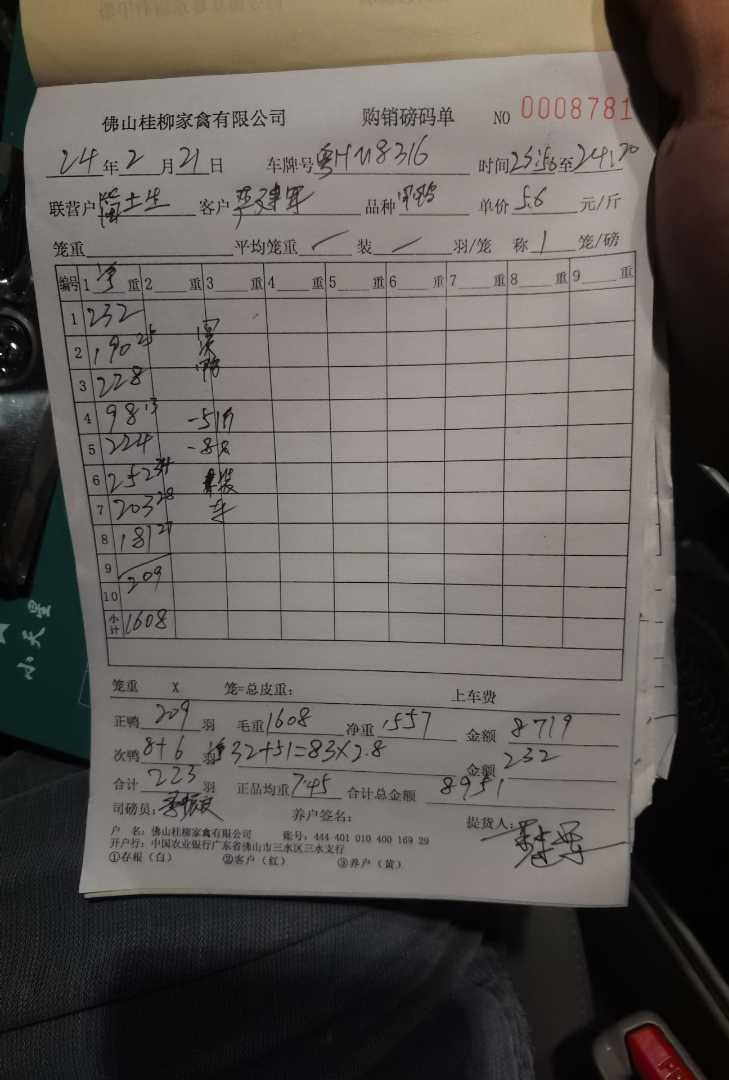 佛山桂柳家禽有限公司 购销磅码单 NO 0008781
24年2月21日 车牌号粤H118316 时间23:56至24:20
联营户 土生 客户 建军 品种 单价5.6元/斤
笼重 平均笼重 / 装 / 羽/笼 称1笼/磅
编号 1净重 2重 3重 4重 5重 6重 7重 8重 9重
1 232
2 190 25
3 228
4 98 13 -51斤
5 224 -8只
6 252
7 203 28 装车
8 181 27
9
10 209
小计 1608
笼重 X 笼=总皮重: 上车费
正鸭209羽 毛重1608 净重1557 金额8719
次鸭8+6羽 32+51=83×2.8 金额232
合计223羽 正品均重7.45 合计总金额8951
司磅员: 养户签名: 提货人:
户 名: 佛山桂柳家禽有限公司 账号: 444 401 010 400 169 29
开户行: 中国农业银行广东省佛山市三水区三水支行
①存根(白) ②客户(红) ③养户(黄)
小天星